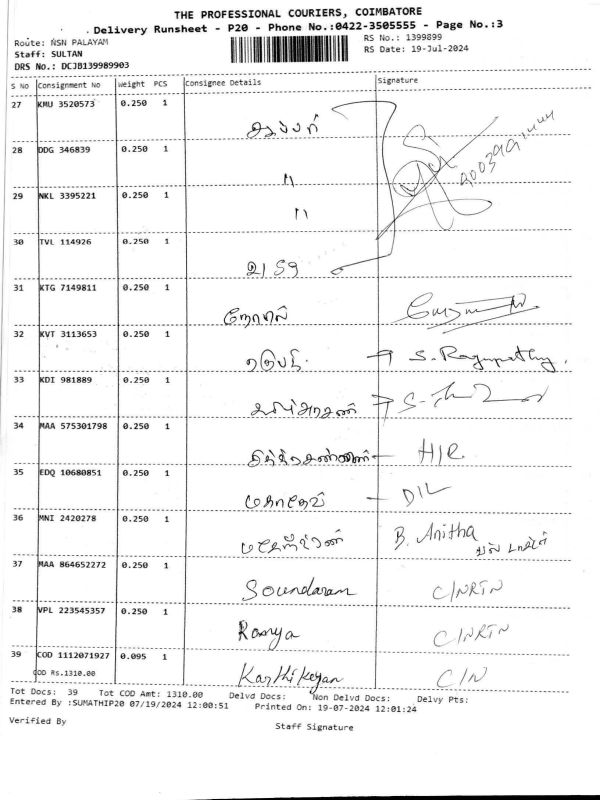 THE PROFESSIONAL COURIERS, COIMBATORE
Delivery Runsheet - P20 - Phone No.:0422-3505555 - Page No.:3
Route: NSN PALAYAM RS No.: 1399899
Staff: SULTAN RS Date: 19-Jul-2024
DRS No.: DCJB139989903
S No Consignment No Weight PCS Consignee Details Signature
27 KMU 3520573 0.250 1
28 DDG 346839 0.250 1 "
29 NKL 3395221 0.250 1 "
30 TVL 114926 0.250 1
31 KTG 7149811 0.250 1
32 KVT 3113653 0.250 1 S. Ragupathy.
33 KDI 981889 0.250 1
34 MAA 575301798 0.250 1
35 EDQ 10680851 0.250 1 மகாதேவி - DIL
36 MNI 2420278 0.250 1 B. Anitha
37 MAA 864652272 0.250 1 Soundaram C/NRTN
38 VPL 223545357 0.250 1 Ramya C/NRTN
39 COD 1112071927 0.095 1 Karthikeyan C/N
COD Rs.1310.00
Tot Docs: 39 Tot COD Amt: 1310.00 Delvd Docs: Non Delvd Docs: Delvy Pts:
Entered By :SUMATHIP20 07/19/2024 12:00:51 Printed On: 19-07-2024 12:01:24
Verified By Staff Signature